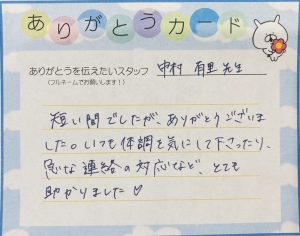 ありがとうカード
ありがとうを伝えたいスタッフ 中村 有里 先生
(フルネームでお願いします!)
短い間でしたが、ありがとうございま
した。いつも体調を気にして下さったり、
急な連絡の対応など、とても
助かりました♡